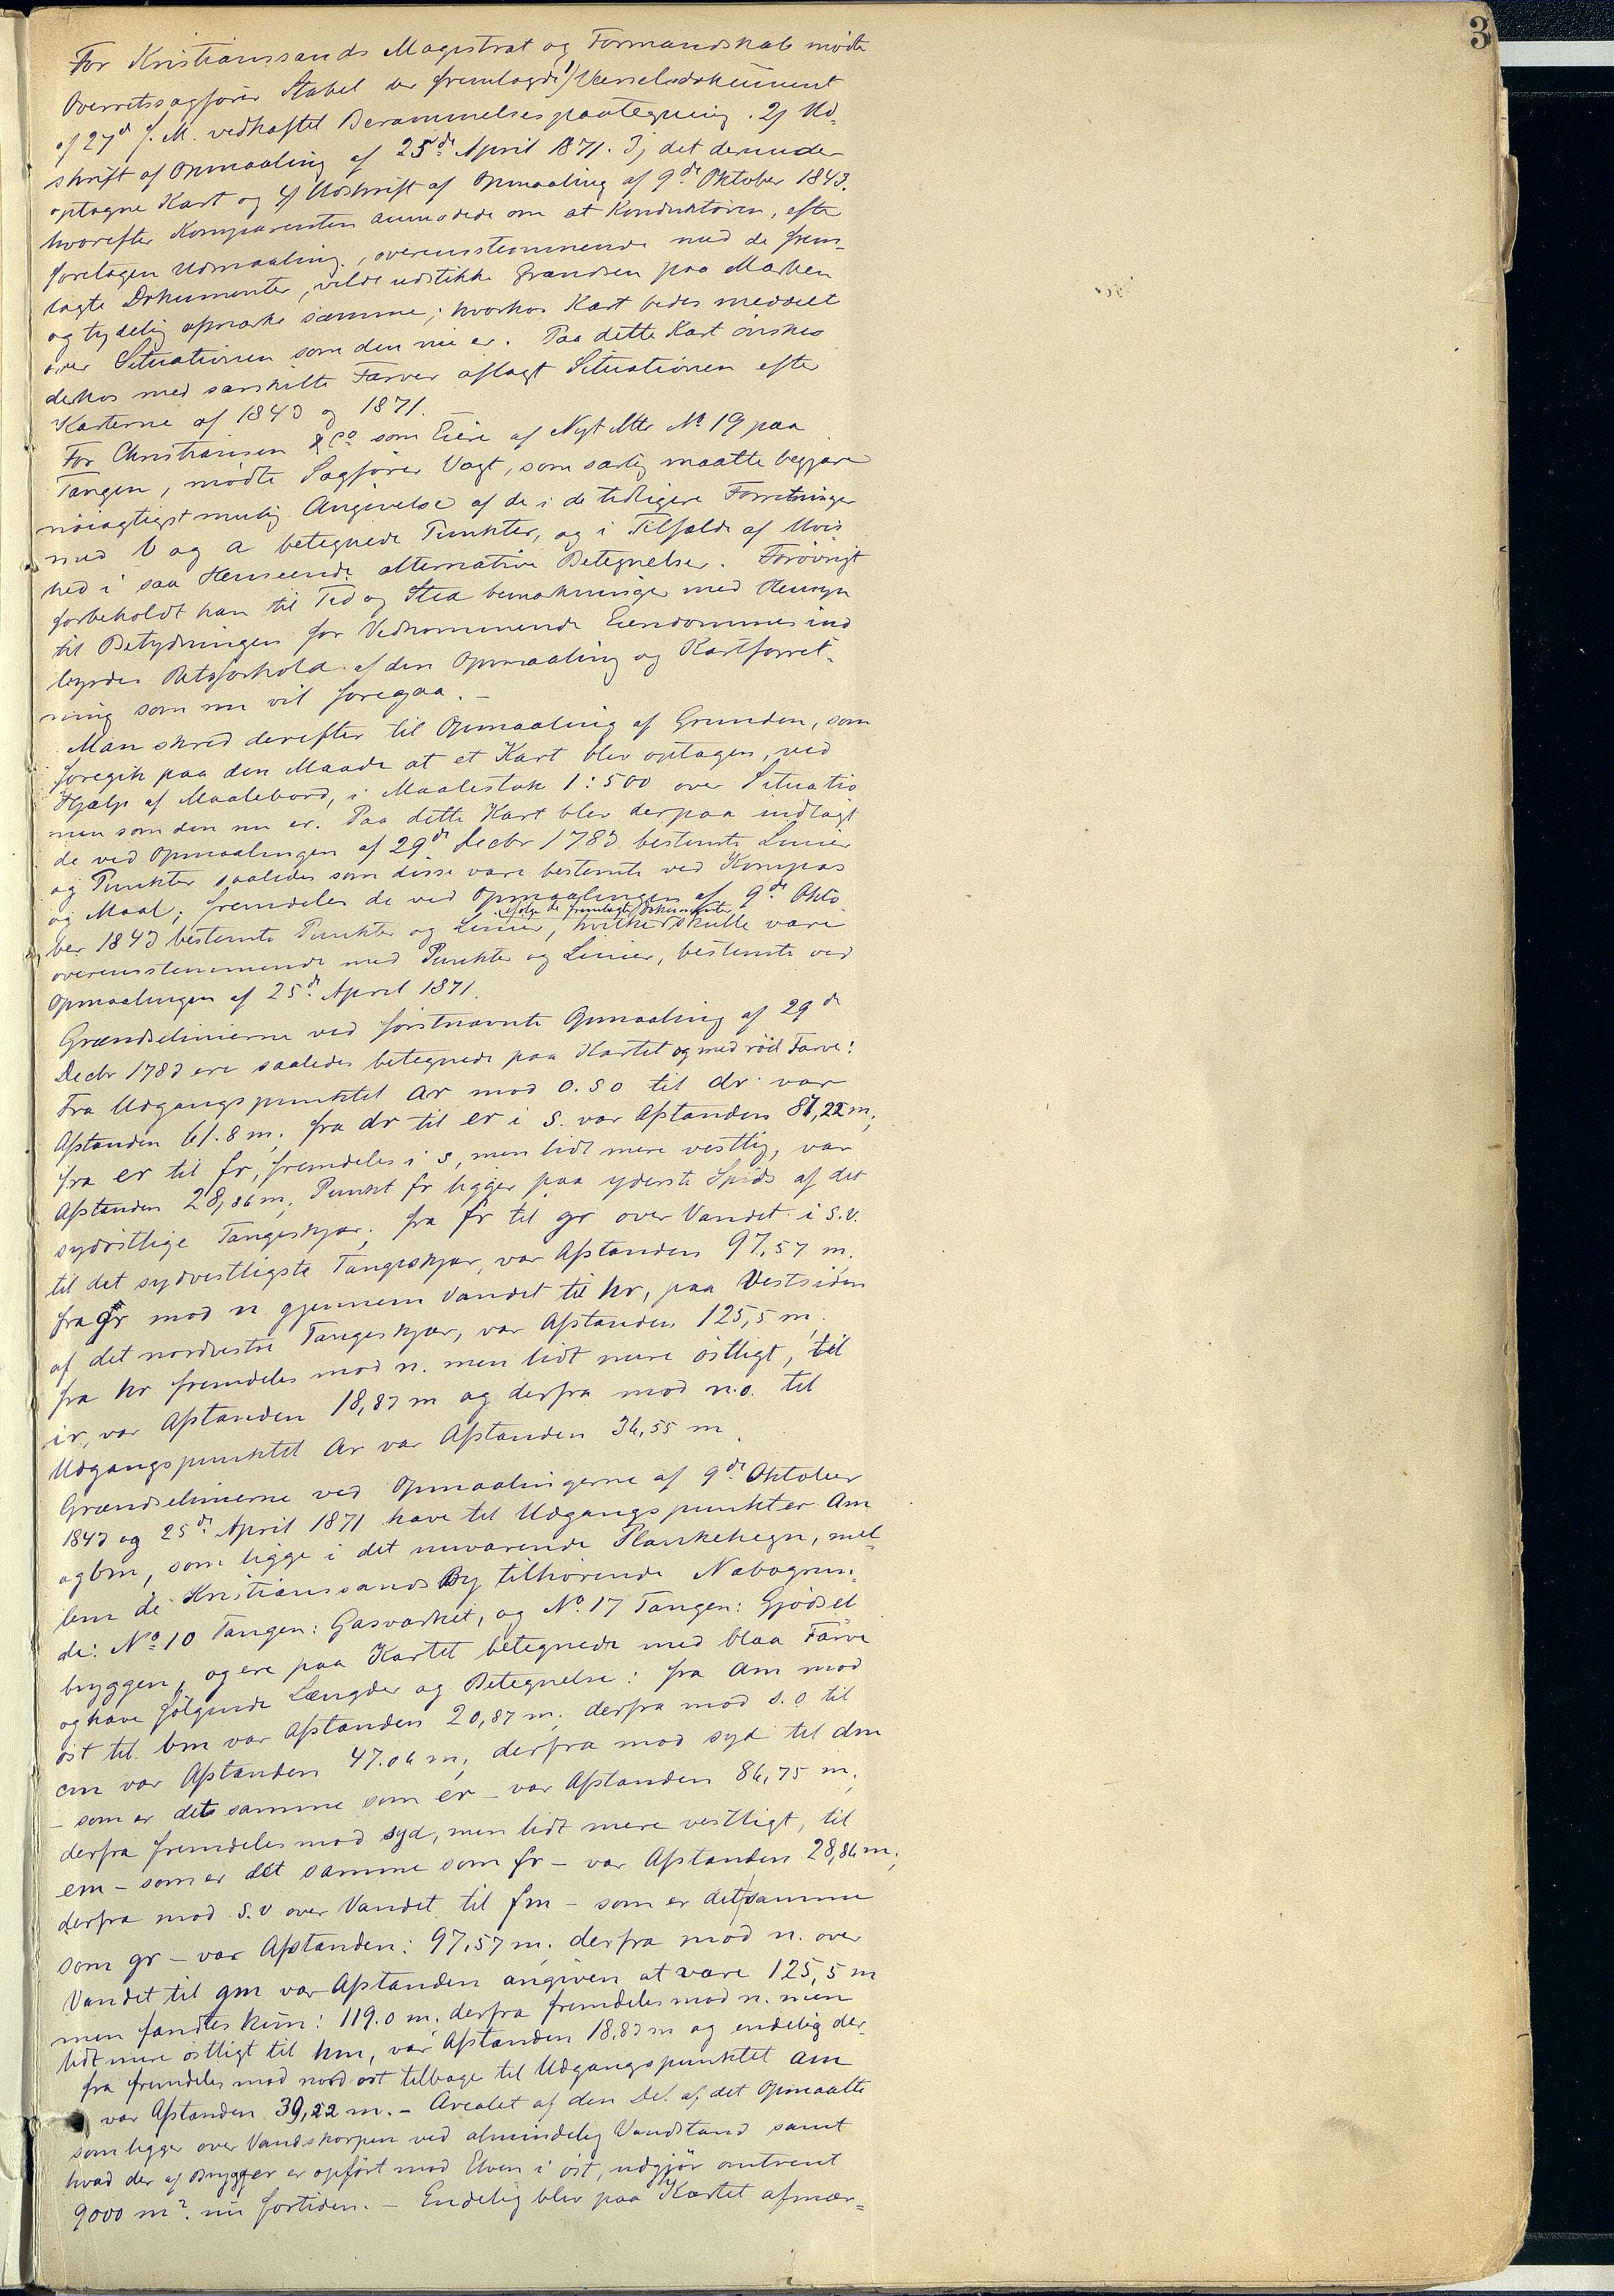 3
For Kristianssands Magistrat og Formandskab mødte
Overretssagfører Stabel der fremlagde 1) Varselsdokument
af 27de f. M. vedhæftet Berammelsespaategning. 2) Ud-
skrift af Opmaaling af 25de April 1871. 3) det derunder
optagne Kart og 4) Udskrift af Opmaaling af 9de Oktober 1843.
hvorefter Komparenten anmodede om at Konduktøren, efter
foretagen Udmaaling, overensstemmende med de frem-
lagte Dokumenter, vilde udstikke Grændsen paa Marken
og tydelig opmærke samme; hvorhos Kart bedes meddelt
over Situationen som den nu er. Paa dette Kart ønskes
derhos med særskilte Farver aflagt Situationen efter
Karterne af 1843 og 1871.
For Christiansen & Co som Eiere af Nyt Mtr No 19 paa
Tangen, mødte Sagfører Vogt, som særlig maatte begjære
nøiagtigst mulig Angivelse af de i de tidligere Forretninger
med b og a betegnede Punkter, og i Tilfælde af Uvis-
hed i saa Henseende alternative Betegnelser. Forøvrigt
forbeholdt han til Tid og Sted bemærkninger med Hensyn
til Betydningen for Vedkommende Eiendommes ind
byrdes Retsforhold af den Opmaaling og Kartforret-
ning som nu vil foregaa. -
Man skred derefter til Opmaaling af Grunden, som
foregik paa den Maade at et Kart blev optagen, ved
Hjælp af Maalebord, i Maalestok 1:500 over Situatio
nen som den nu er. Paa dette Kart blev derpaa indlagt
de ved Opmaalingen af 29de Decbr 1783 bestemte Linier
og Punkter saaledes som disse vare bestemte ved Kompas
og Maal; fremdeles de ved Opmaalingen af 9de Okto
ifølge de fremlagte Dokumenter
ber 1843 bestemte Punkter og Linier, hvilke skulle være
overensstemmende med Punkter og Linier, bestemte ved
Opmaalingen af 25de April 1871.
Grændselinierne ved førstnævnte Opmaaling af 29de
Decbr 1783 ere saaledes betegnede paa Kartet og med rød Farve:
Fra Udgangspunktet ar mod O.S.O til dr var
Afstanden 61.8 m; fra dr til er i S. var Afstanden 87,22 m;
fra er til fr, fremdeles i S, men lidt mere vestlig, var
Afstanden 28,86 m; Punkt fr ligger paa yderste Spids af det
sydøstlige Tangeskjær; fra fr til gr over Vandet i S.V.
til det sydvestligste Tangeskjær, var Afstanden 97,57 m.
fra gr mod N gjennem Vandet til hr, paa Vestsiden
af det nordvestre Tangeskjær, var Afstanden 125,5 m;
fra hr fremdeles mod N. men lidt mere østligt, til
ir, var Afstanden 18,83 m og derfra mod N.O. til
Udgangspunktet ar var Afstanden 36,55 m.
Grændselinierne ved Opmaalingerne af 9de Oktober
1843 og 25de April 1871 have til Udgangspunkter am
og bm, som ligge i det nuværende Plankehegn, mel-
lem de Kristianssands By tilhørende Nabogrun-
de: No 10 Tangen: Gasværket, og No 17 Tangen: Gjødsel
bryggen, og ere paa Kartet betegnede med blaa Farve
og have følgende Længder og Betegnelse: fra am mod
øst til bm var Afstanden 20,87 m; derfra mod S.O til
cm var Afstanden 47.06 m; derfra mod syd til dm
- som er det samme som er - var Afstanden 86,75 m;
derfra fremdeles mod syd, men lidt mere vestligt, til
em - som er det samme som fr - var Afstanden 28,86 m;
derfra mod S.V over Vandet til fm - som er det samme
som gr - var Afstanden: 97,57 m; derfra mod N. over
Vandet til gm var Afstanden angiven at være 125,5 m
men fandtes kun: 119.0 m; derfra fremdeles mod N. men
lidt mere østligt til hm, var Afstanden 18,83 m og endelig der-
fra fremdeles mod nord ost tilbage til Udgangspunktet am
var Afstanden 39,22 m. - Arealet af den Del af det Opmaalte
som ligger over Vandskorpen ved almindelig Vandstand samt
hvad der af Brygger er opført mod Elven i øst, udgjør omtrent
9000 m2. nu fortiden. - Endelig blev paa Kartet afmær-